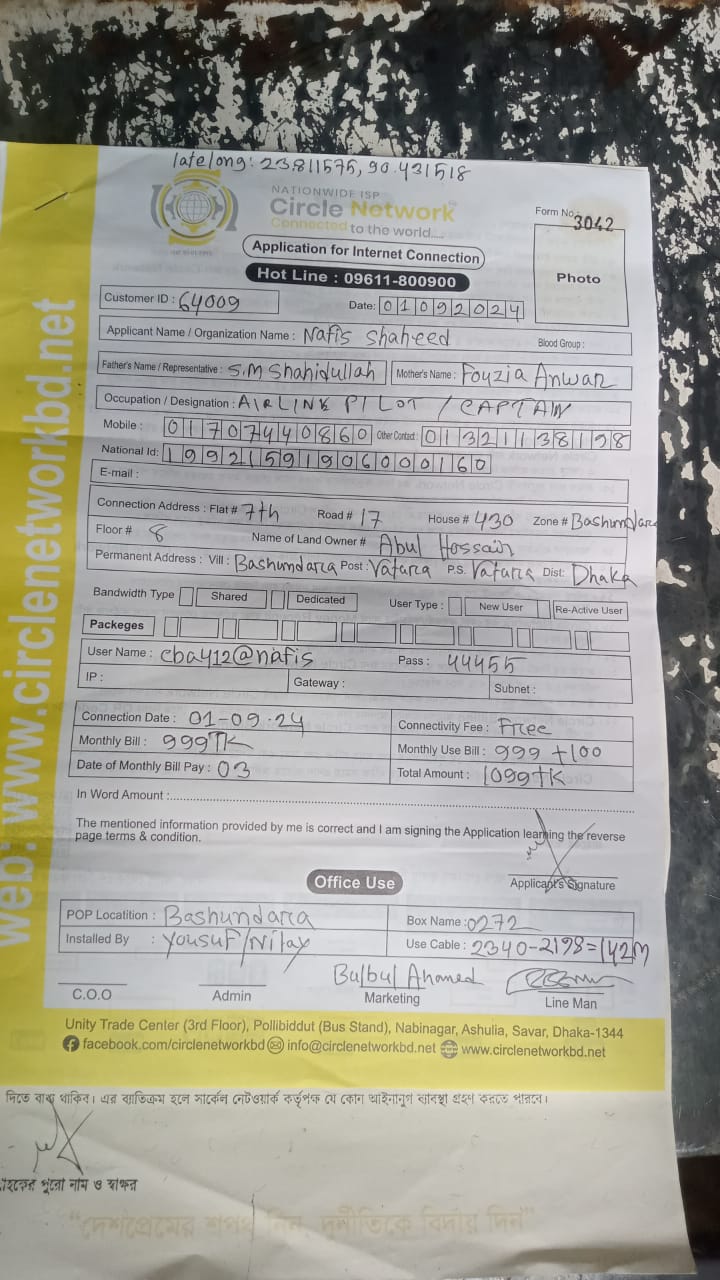 late/long: 23.811575, 90.431518
NATIONWIDE ISP
Circle Network
Connected to the world....
Form No.: 3042
Application for Internet Connection
Photo
Hot Line : 09611-800900
Customer ID : 64009
Date: 01092024
Applicant Name / Organization Name : Nafis Shaheed Blood Group :
Father's Name / Representative : S.M Shahidullah Mother's Name : Fouzia Anwar
Occupation / Designation : AIRLINE PILOT / CAPTAIN
Mobile : 01707440860 Other Contact : 01321138198
National Id: 19921591906000160
E-mail :
Connection Address : Flat # 7th Road # 17 House # 430 Zone # Bashundara
Floor # 8 Name of Land Owner # Abul Hossain
Permanent Address : Vill : Bashundara Post : Vatara P.S. Vatara Dist: Dhaka
Bandwidth Type Shared Dedicated User Type : New User Re-Active User
Packeges
User Name : cba412@nafis Pass : 44455
IP : Gateway : Subnet :
Connection Date : 01-09-24 Connectivity Fee : Free
Monthly Bill : 999TK Monthly Use Bill : 999 +100
Date of Monthly Bill Pay : 03 Total Amount : 1099TK
In Word Amount :
The mentioned information provided by me is correct and I am signing the Application learning the reverse
page terms & condition.
Applicant's Signature
Office Use
POP Locatition : Bashundara Box Name : 0272
Installed By : Yousuf/Nilay Use Cable : 2340-2198=142M
Bulbul Ahamed
C.O.O Admin Marketing Line Man
Unity Trade Center (3rd Floor), Pollibiddut (Bus Stand), Nabinagar, Ashulia, Savar, Dhaka-1344
facebook.com/circlenetworkbd info@circlenetworkbd.net www.circlenetworkbd.net
web: www.circlenetworkbd.net
দিতে বাধ্য থাকিব। এর ব্যতিক্রম হলে সার্কেল নেটওয়ার্ক কর্তৃপক্ষ যে কোন আইনানুগ ব্যবস্থা গ্রহণ করতে পারবে।
গ্রাহকের পুরো নাম ও স্বাক্ষর
"দেশপ্রেমের শপথ নিন, দুর্নীতিকে বিদায় দিন"